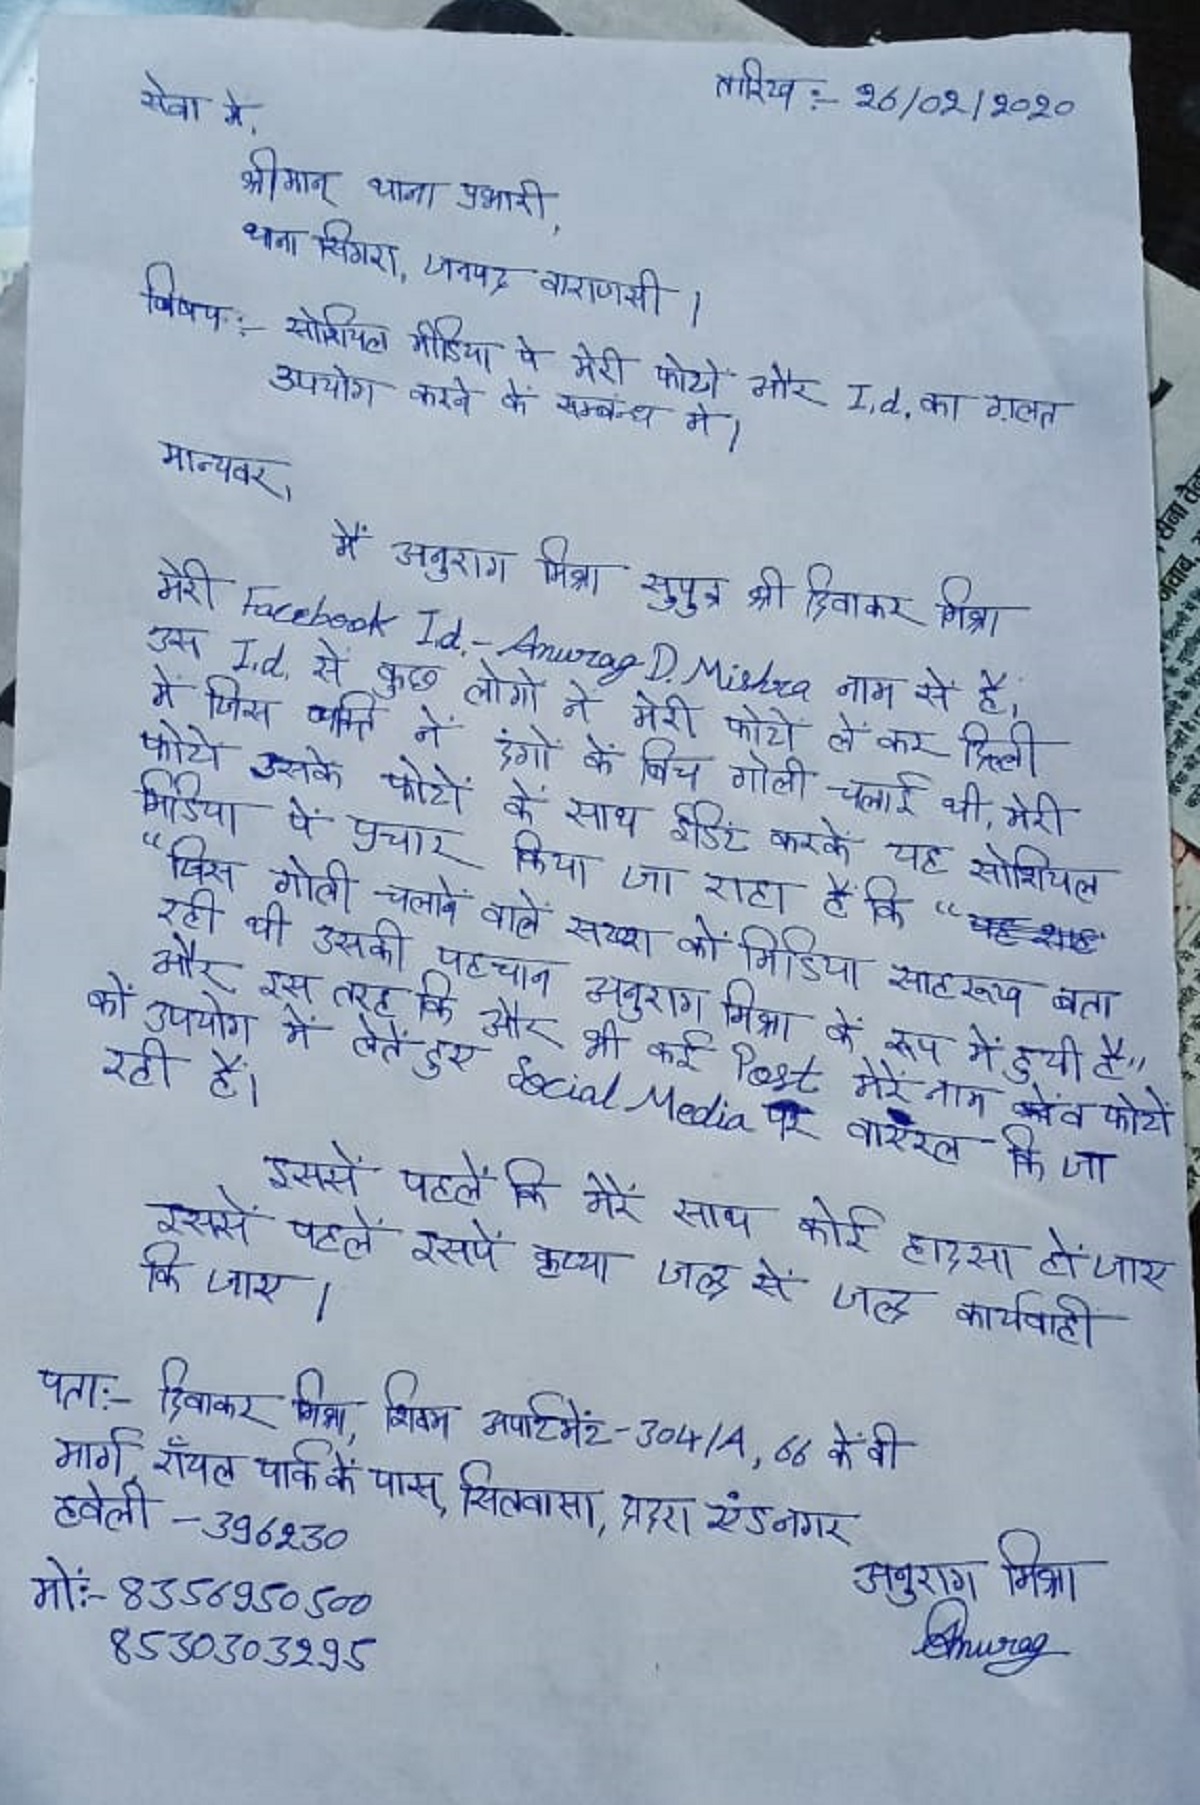 तारिख :- 26/02/2020
सेवा में,
श्रीमान् थाना प्रभारी,
थाना सिगरा, जनपद वाराणसी।
विषय :- सोशियल मीडिया पे मेरी फोटो और I.d. का ग़लत
उपयोग करने कें सम्बन्ध में।
मान्यवर,
मैं अनुराग मिश्रा सुपुत्र श्री दिवाकर मिश्रा
मेरी Facebook I.d.- Anurag D. Mishra नाम सें है,
उस I.d. सें कुछ लोगों नें मेरी फोटो लें कर दिल्ली
में जिस व्यक्ति नें दंगों कें बिच गोली चलाई थी, मेरी
फोटो उसके फोटों कें साथ ईडिट करकें यह सोशियल
मिडिया पें प्रचार किया जा राहा हैं कि "
"जिस गोली चलानें वालें सख्श कों मिडिया साहरूख बता
रही थी उसकी पहचान अनुराग मिश्रा कें रूप में हुयी है"
और इस तरह कि और भी कई Post मेरें नाम व फोटों
कों उपयोग में लेतें हुए Social Media पर वायरल कि जा
रही हैं।
इससें पहलें कि मेरें साथ कोई हादसा हों जाए
इससें पहलें इसपें कृप्या जल्द सें जल्द कार्यवाही
कि जाए।
पता:- दिवाकर मिश्रा, शिवम अपार्टमेंट-304/A, 66 कें वी
मार्ग, रॉयल पार्क कें पास, सिलवासा, दादरा एंड नगर
हवेली - 396230
मों:- 8356950500
8530303295
अनुराग मिश्रा
Anurag